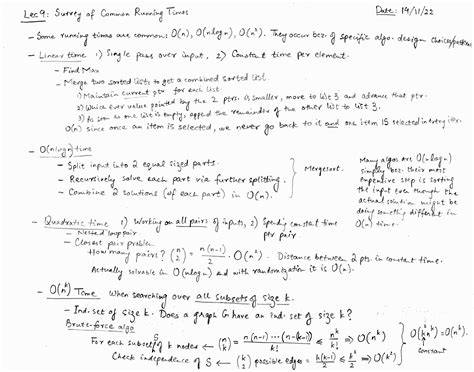 Lec 9: Survey of Common Running Times
Date: 19/11/22
- Some running times are common: O(n), O(nlogn), O(n²). They occur bcz. of specific algo. design choices/patterns
- Linear time 1) Single pass over input, 2) Constant time per element.
- Find Max
- Merge two sorted lists to get a combined sorted list.
1) Maintain current ptr for each list.
2) Whichever value pointed by the 2 ptrs. is smaller, move to list 3 and advance that ptr.
3) As soon as one list is empty, append the remainder of the other list to list 3.
O(n) since once an item is selected, we never go back to it and one item is selected in every iter.
- O(nlogn) time
- Split input into 2 equal sized parts.
- Recursively solve each part via further splitting.
- Combine 2 solutions (of each part) in O(n).
Mergesort.
Many algos are O(nlogn)
simply bcz. their most
expensive step is sorting
the input even though the
actual solution might be
doing something different in
O(n) time.
- Quadratic time 1) Working on all pairs of inputs, 2) Spending constant time
per pair
- Nested loop pair
- Closest pair problem
How many pairs? (n 2) = n(n-1)/2 = O(n²). Distance between 2 pts. in constant time.
Actually solvable in O(nlogn) and with randomization it is O(n).
- O(nᵏ) Time When searching over all subsets of size k.
- Ind. set of size k. Does a graph G have an ind. set of size k?
Brute-force algo
For each subset S of k nodes ← (n k) = n(n-1)...(n-(k-1))/k! ≤ nᵏ/k! ⇒ O(nᵏ)
Check independence of S ← (k 2) possible edges = k(k-1)/2 ≤ k²/2 ⇒ O(k²)
O(k² nᵏ/k!) = O(nᵏ).
Constant